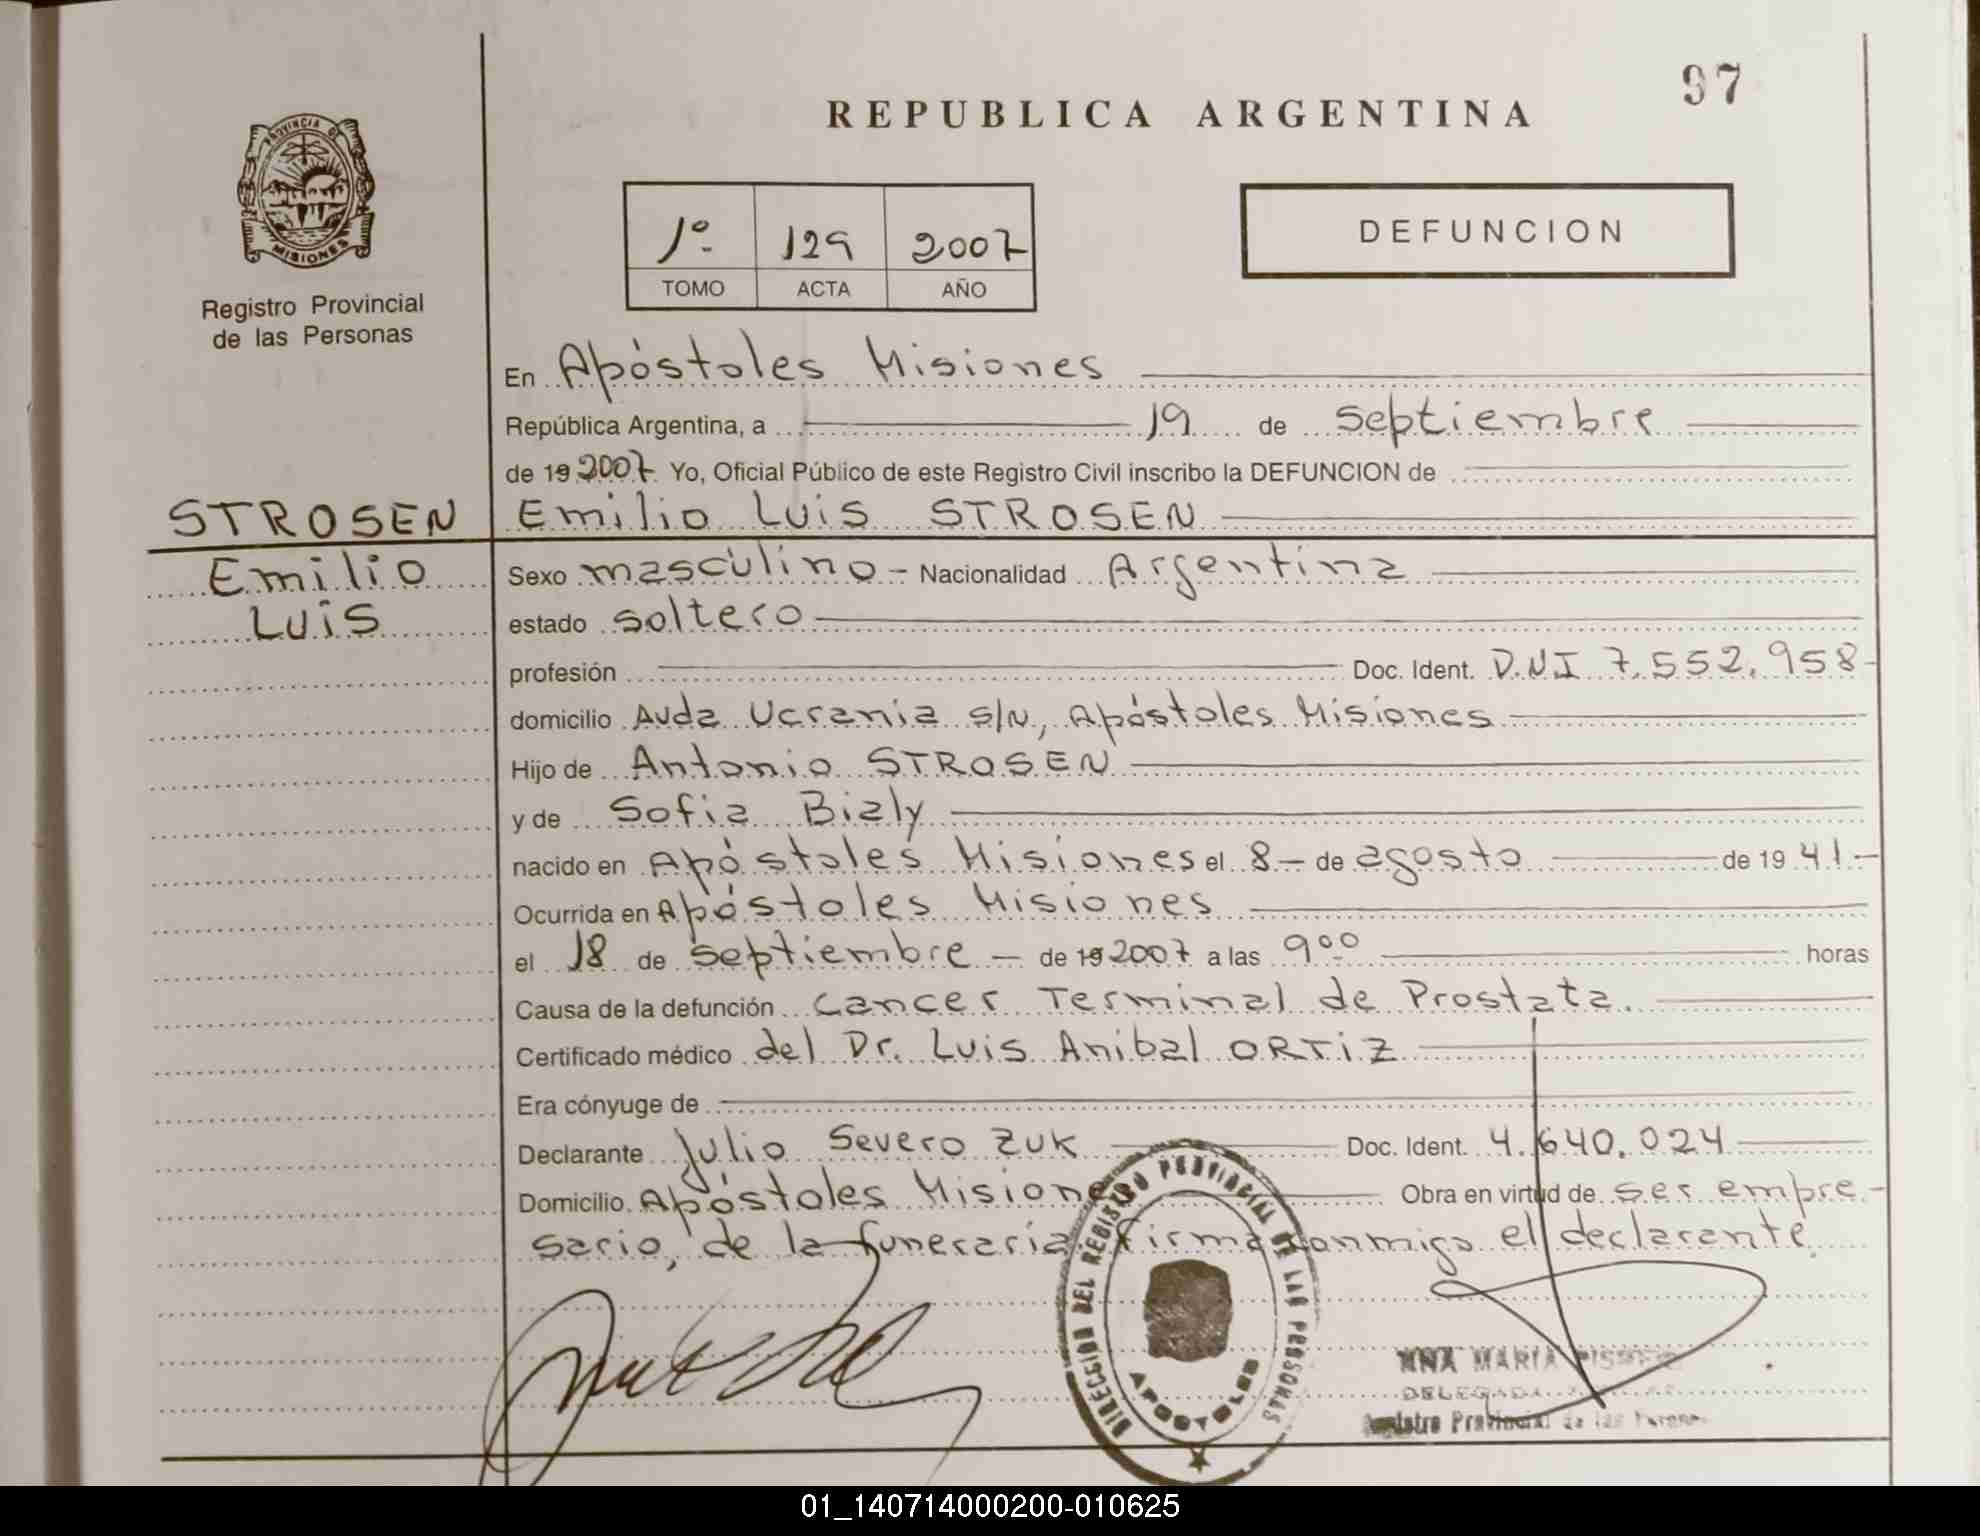 97
REPUBLICA ARGENTINA
PROVINCIA DE
MISIONES
Registro Provincial
de las Personas
1º 129 2007
TOMO ACTA AÑO
DEFUNCION
En Apóstoles Misiones
República Argentina, a 19 de septiembre
de 19 2007 Yo, Oficial Público de este Registro Civil inscribo la DEFUNCION de
STROSEN
Emilio
Luis
Emilio Luis STROSEN
Sexo masculino - Nacionalidad Argentina
estado soltero
profesión Doc. Ident. D.N.I 7.552.958-
domicilio Avda Ucrania s/N, Apóstoles Misiones
Hijo de Antonio STROSEN
y de Sofia Bialy
nacido en Apóstoles Misiones el 8 - de agosto de 19 41.-
Ocurrida en Apóstoles Misiones
el 18 de septiembre - de 19 2007 a las 9 00 horas
Causa de la defunción cancer Terminal de Prostata.
Certificado médico del Dr. Luis Anibal ORTIZ
Era cónyuge de
Declarante Julio Severo ZUK Doc. Ident. 4.640.024
Domicilio Apóstoles Misiones Obra en virtud de ser empre-
sario, de la funeraria firma conmigo el declarante.
DIRECCION DEL REGISTRO PROVINCIAL DE LAS PERSONAS
APOSTOLES
ANA MARIA
DELEGADA
Registro Provincial de las Personas
01_140714000200-010625